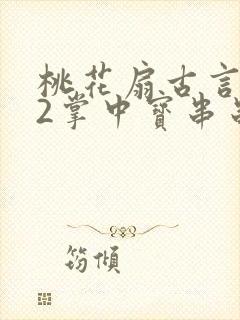 桃花扇古言
2掌中寶串
筠傾